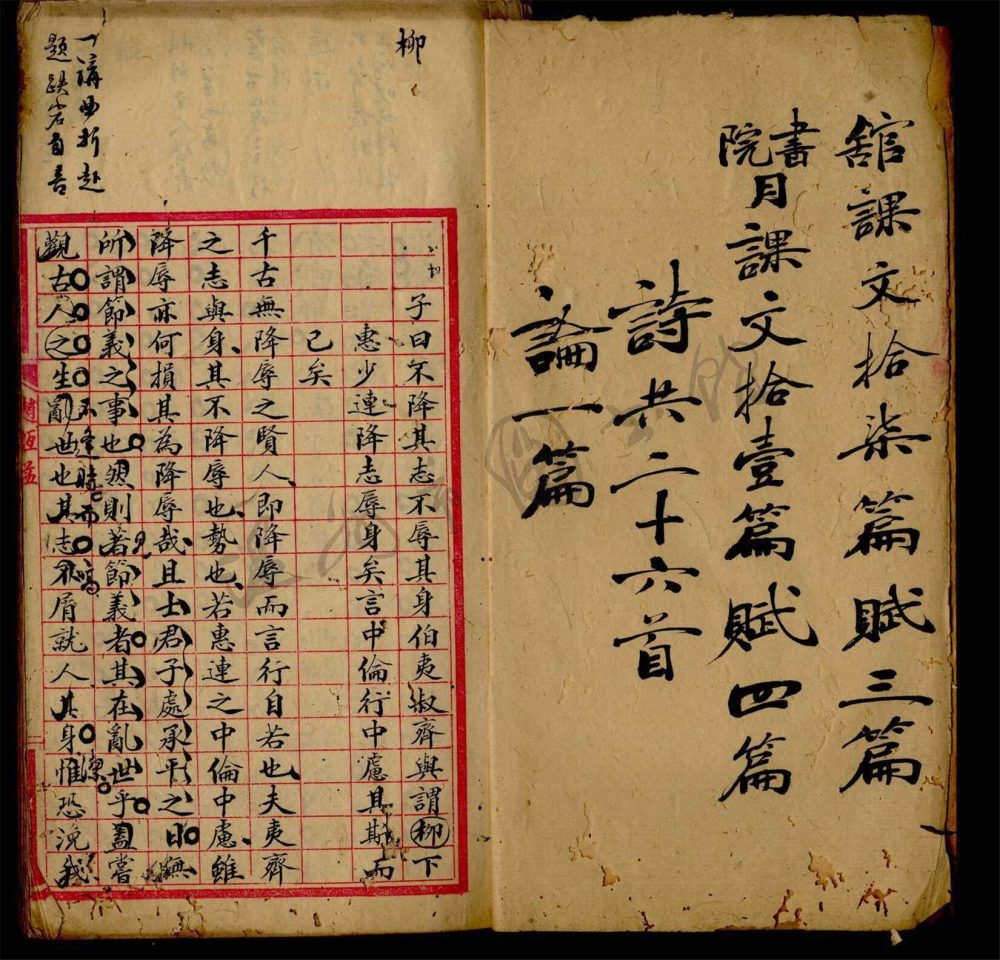 舘課文拾柒篇賦三篇
書院月課文拾壹篇賦四篇
詩共二十六首
論一篇
柳
一講曲折赴
題跌宕自喜
子曰不降其志不辱其身伯夷叔齊與謂柳下
惠少連降志辱身矣言中倫行中慮其斯而
已矣
千古無降辱之賢人即降辱而言行自若也夫夷齊
之志與身其不降辱也勢也若惠連之中倫中慮雖
降辱亦何損其為降辱哉且士君子處承平之日無
所謂節義之事也然則著節義者其在亂世乎蓋嘗
見
觀古人之生亂世也其志不屑就人其身惟恐浼我
不逢時而
高
潔